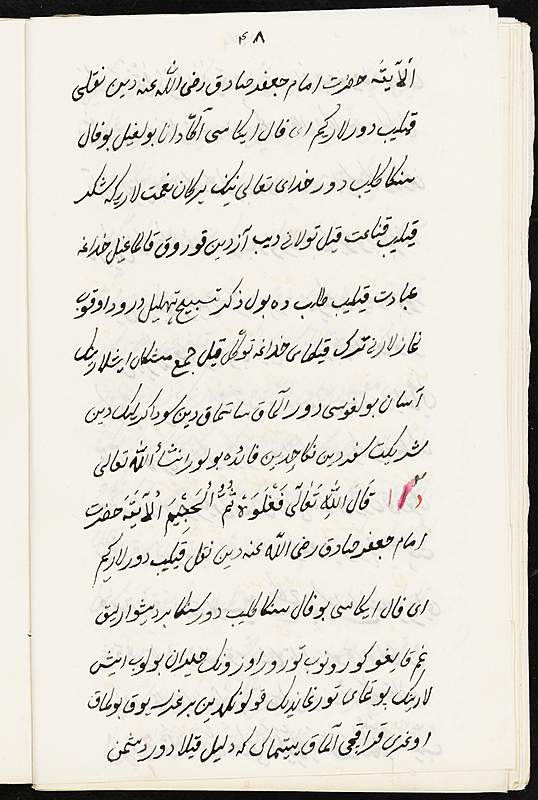 ۴۸
الآیة حضرت امام جعفر صادق رضی الله عنه دین نقل
قیلیب دورلارکیم ای فال ایکاسی آگاه دانا بولغیل بو فال
سنکا کلیب دور خدای تعالی نینک بیرکان نعمت لاریکه شکر
قیلیب قناعت قیل توبه دیب آزدین قوروق قالماغیل خداغه
عبادت قیلیب طلب ده بول ذکر تسبیح تهلیل درود اوقوب
نمازلارنی ترک قیلمای خداغه توکل قیل جمیع مشکل ایشلارینک
آسان بولغوسی دور آلماق ساتماق دین سوداکرلیک دین
شریکت سفردین نکاحدین فائده بولور انشاء الله تعالی
د ا قال الله تعالی فغلوه ثم الجحیم الآیة حضرت
امام جعفر صادق رضی الله عنه دین نقل قیلیب دورلارکیم
ای فال ایکاسی بو فال سنکا کلیب دور سنکا بر دشوارلیق
غم قایغو کورونوب تورور اوزونک حیران بولوب ایش
لارینک بوغای تورغاندیک قولونکدین بر نرسه یوق بولماق
اوغری قراقچی آلماق یتیمال که دلیل قیلادور دشمن